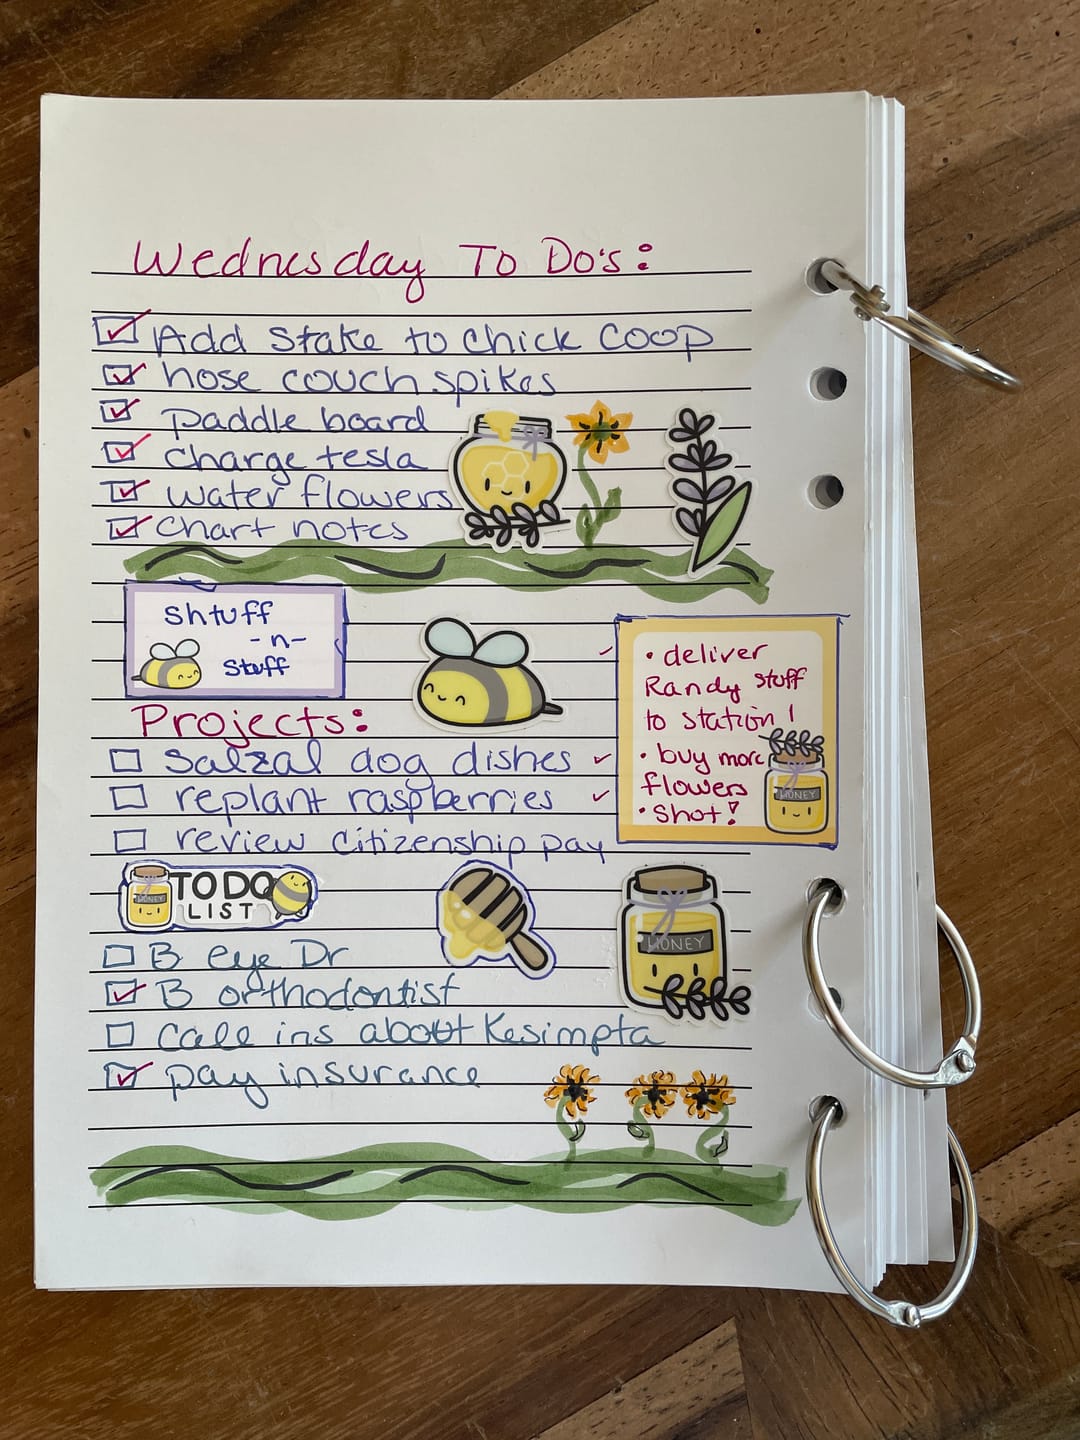 Wednesday To Do's:
Add stake to chick coop
hose couch spikes
paddle board
charge tesla
water flowers
chart notes
Shtuff
-n-
Stuff
• deliver
Randy stuff
to station!
• buy more
flowers
• Shot!
HONEY
Projects:
Salzal dog dishes
replant raspberries
review citizenship pay
HONEY
TO DO
LIST
HONEY
B eye Dr
B orthodontist
Call ins about Kesimpta
pay insurance